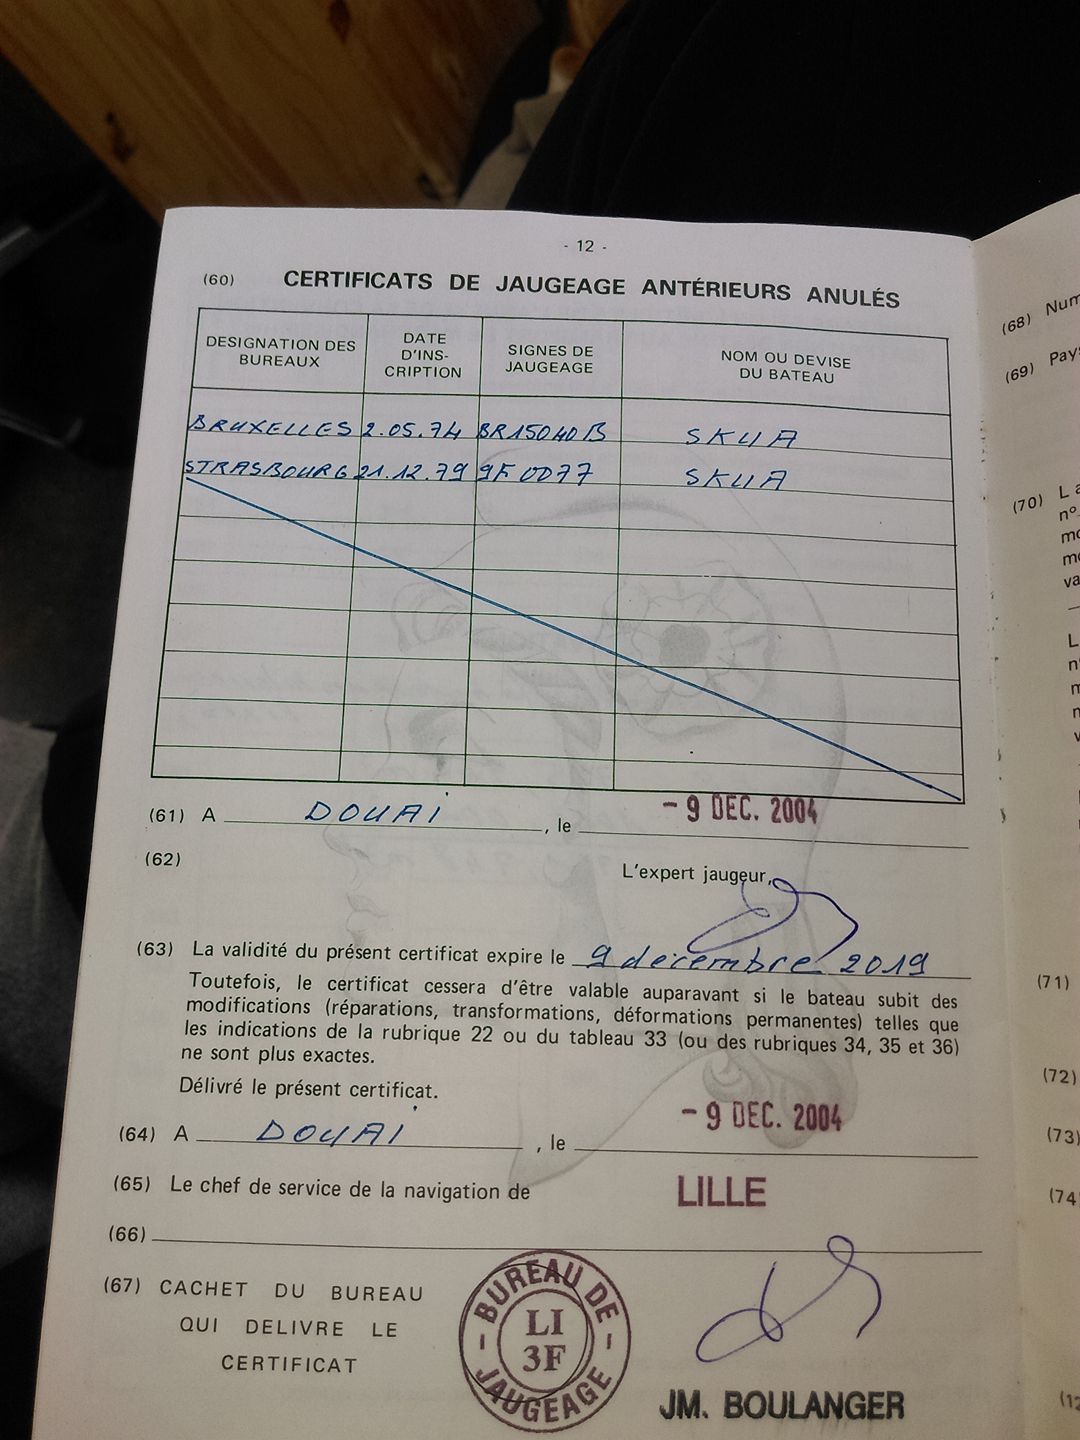 - 12 -
(60) CERTIFICATS DE JAUGEAGE ANTÉRIEURS ANULÉS
DESIGNATION DES BUREAUX
DATE D'INS-CRIPTION
SIGNES DE JAUGEAGE
NOM OU DEVISE DU BATEAU
BRUXELLES 2.05.74 BR15040B SKUA
STRASBOURG 21.12.79 9F0077 SKUA
(61) A DOUAI, le - 9 DEC. 2004
(62) L'expert jaugeur,
(63) La validité du présent certificat expire le 9 decembre 2019
Toutefois, le certificat cessera d'être valable auparavant si le bateau subit des
modifications (réparations, transformations, déformations permanentes) telles que
les indications de la rubrique 22 ou du tableau 33 (ou des rubriques 34, 35 et 36)
ne sont plus exactes.
Délivré le présent certificat.
(64) A DOUAI, le - 9 DEC. 2004
(65) Le chef de service de la navigation de LILLE
(66)
(67) CACHET DU BUREAU
QUI DELIVRE LE
CERTIFICAT
- BUREAU DE - JAUGEAGE
LI
3F
JM. BOULANGER
(68) Num
(69) Pays
(70) La
n°
mo
mo
va
L
n°
m
m
v
(71)
(72)
(73)
(74
(12